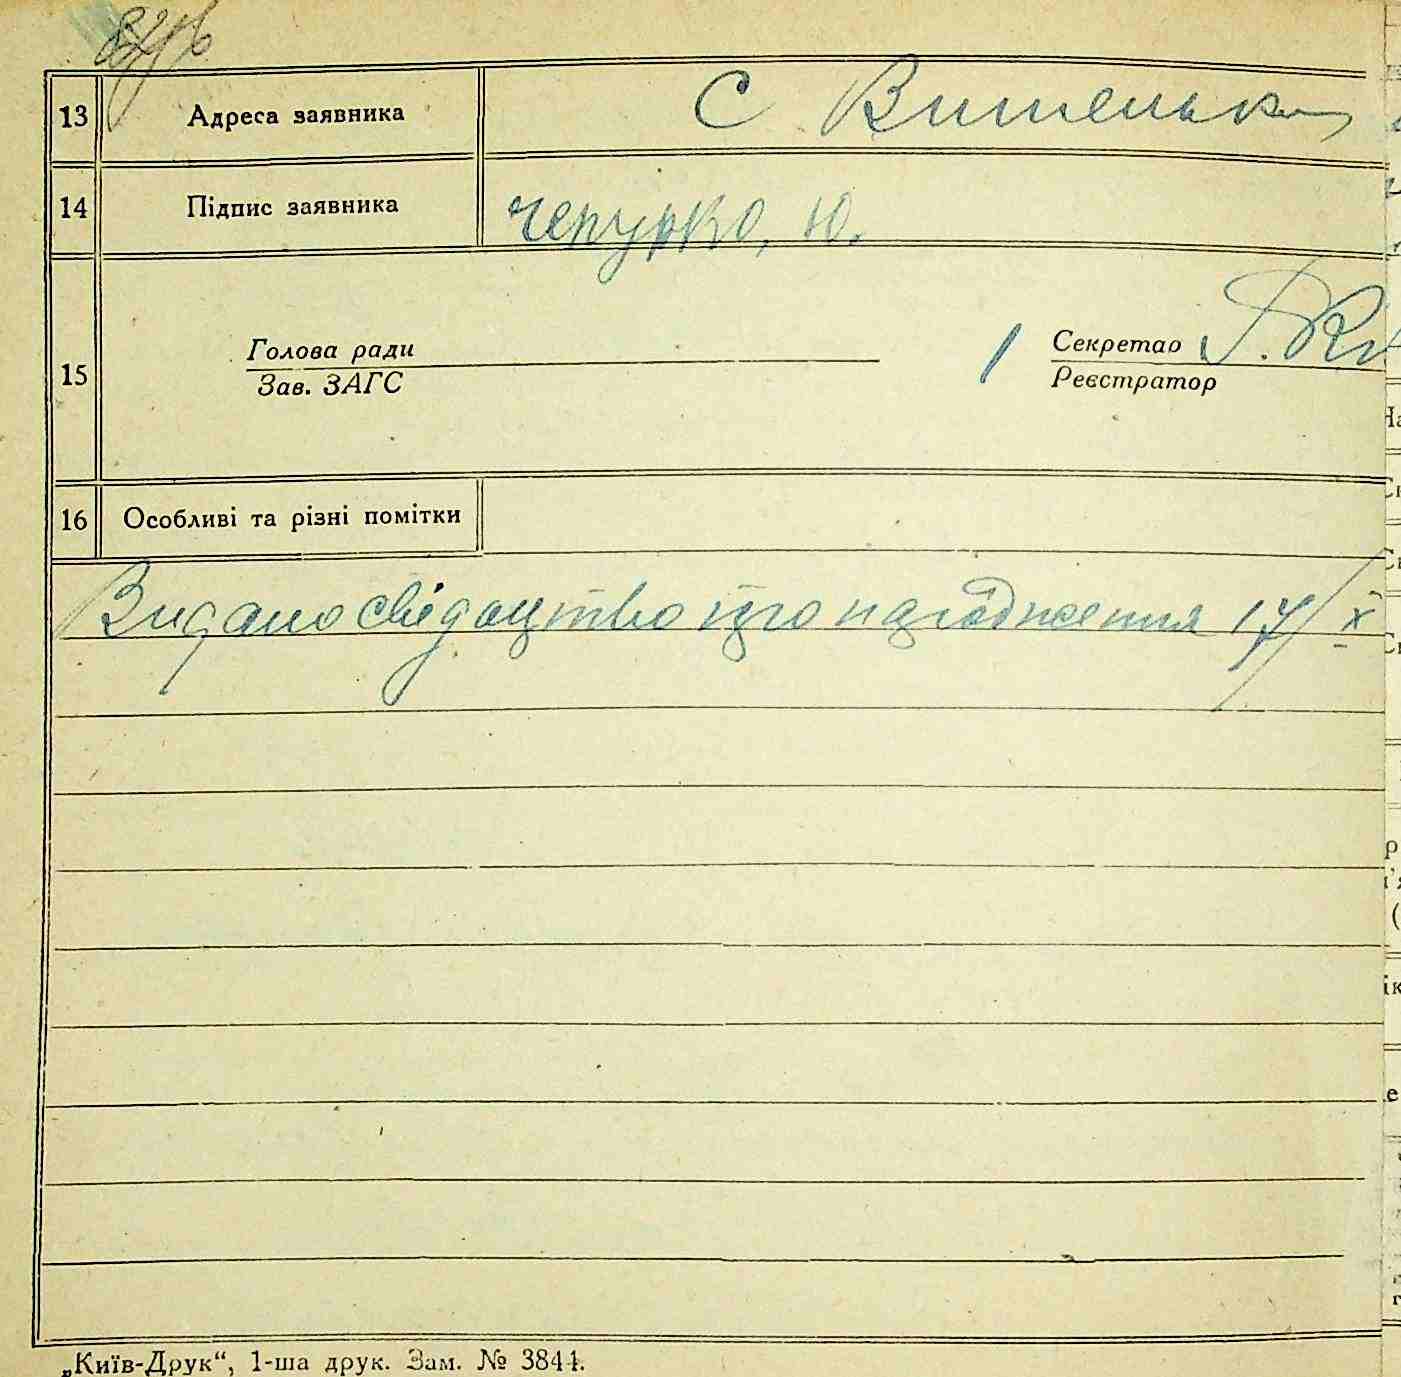 13 Адреса заявника С Вишеньки
14 Підпис заявника Чепурко, Ю.
Голова ради Секретар
15
Зав. ЗАГС Реєстратор
16 Особливі та різні помітки
Видано свідоцтво про народження 17/X
„Київ-Друк“, 1-ша друк. Зам. № 3844.